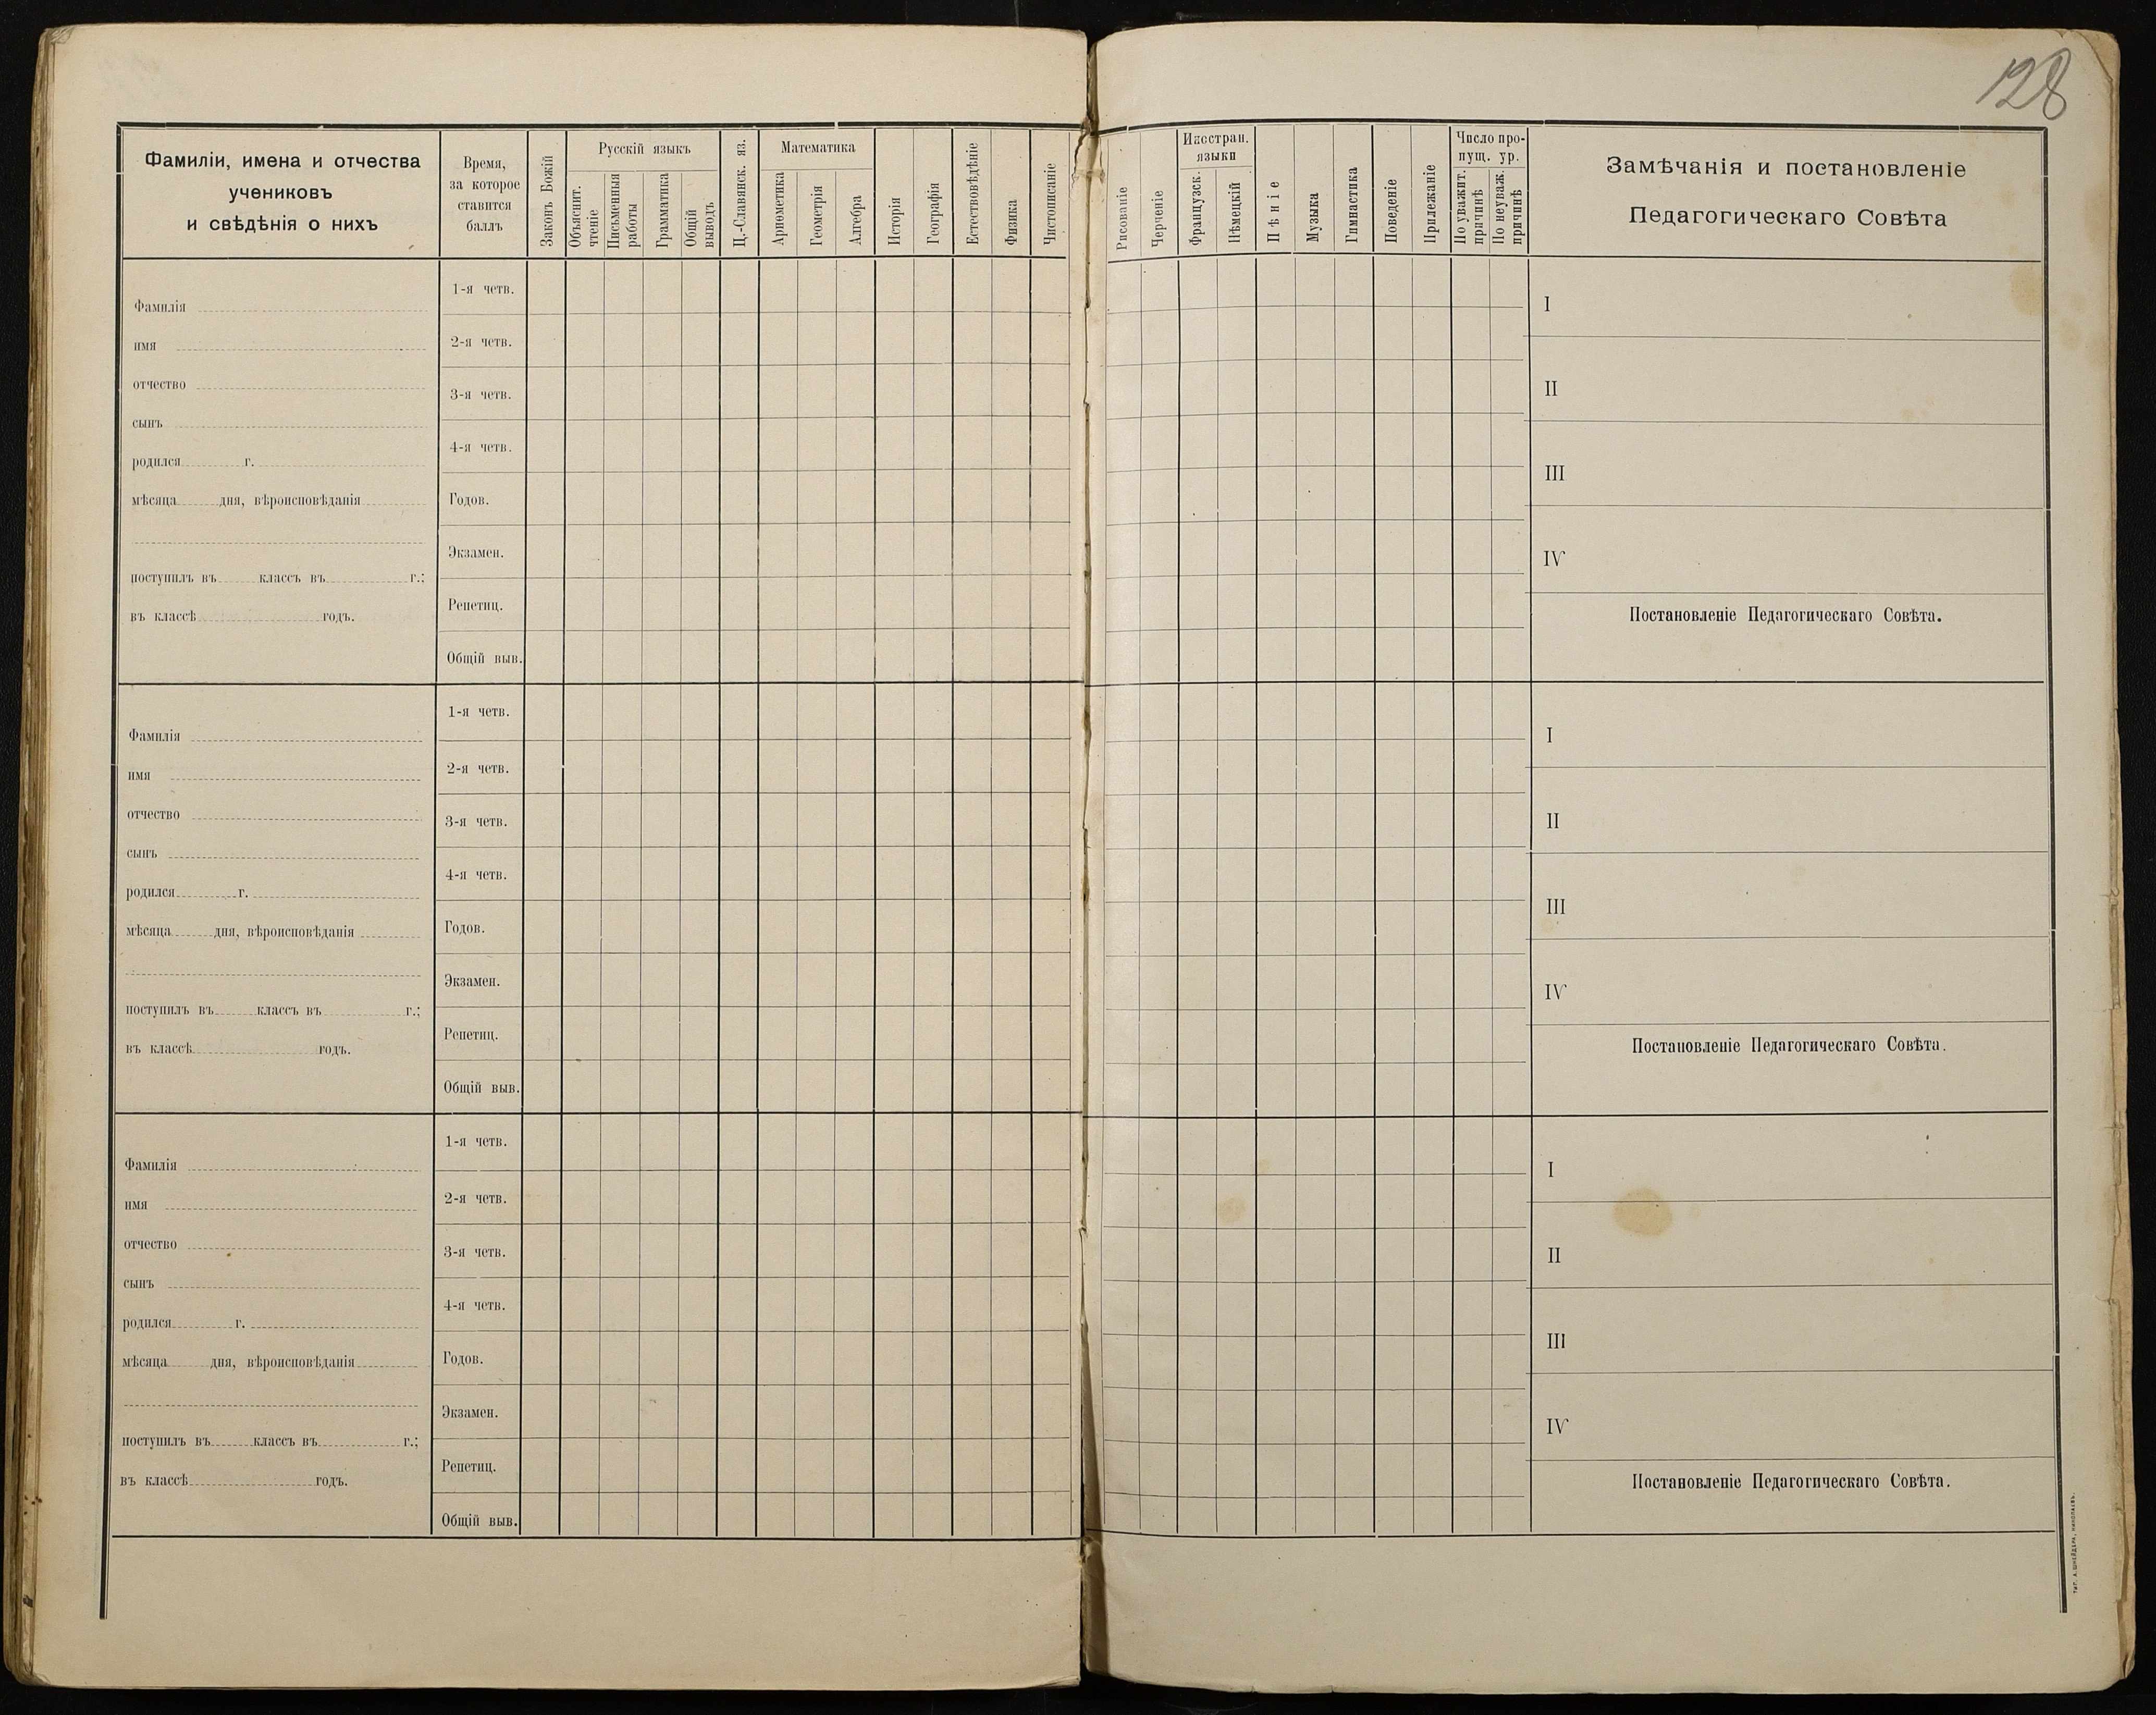 128
Фамиліи, имена и отчества
учениковъ
и свѣдѣнія о нихъ
Время,
за которое
ставится
баллъ
Законъ Божій
Русскій языкъ
Объяснит.
чтеніе
Письменныя
работы
Грамматика
Общій
выводъ
Ц.-Славянск. яз.
Математика
Ариѳметика
Геометрія
Алгебра
Исторія
Географія
Естествовѣдѣніе
Физика
Чистописаніе
Рисованіе
Черченіе
Иностран.
языки
Французск.
Нѣмецкій
Пѣніе
Музыка
Гимнастика
Поведеніе
Прилежаніе
Число про-
пущ. ур.
По уважит.
причинѣ
По неуваж.
причинѣ
Замѣчанія и постановленіе
Педагогическаго Совѣта
Фамилія
имя
отчество
сынъ
родился г.
мѣсяца дня, вѣроисповѣданія
поступилъ въ классъ въ г.;
въ классѣ годъ.
1-я четв.
2-я четв.
3-я четв.
4-я четв.
Годов.
Экзамен.
Репетиц.
Общій выв.
I
II
III
IV
Постановленіе Педагогическаго Совѣта.
Фамилія
имя
отчество
сынъ
родился г.
мѣсяца дня, вѣроисповѣданія
поступилъ въ классъ въ г.;
въ классѣ годъ.
1-я четв.
2-я четв.
3-я четв.
4-я четв.
Годов.
Экзамен.
Репетиц.
Общій выв.
I
II
III
IV
Постановленіе Педагогическаго Совѣта.
Фамилія
имя
отчество
сынъ
родился г.
мѣсяца дня, вѣроисповѣданія
поступилъ въ классъ въ г.;
въ классѣ годъ.
1-я четв.
2-я четв.
3-я четв.
4-я четв.
Годов.
Экзамен.
Репетиц.
Общій выв.
I
II
III
IV
Постановленіе Педагогическаго Совѣта.
ТИП. А. ШНЕЙДЕРА, НИКОЛАЕВЪ.